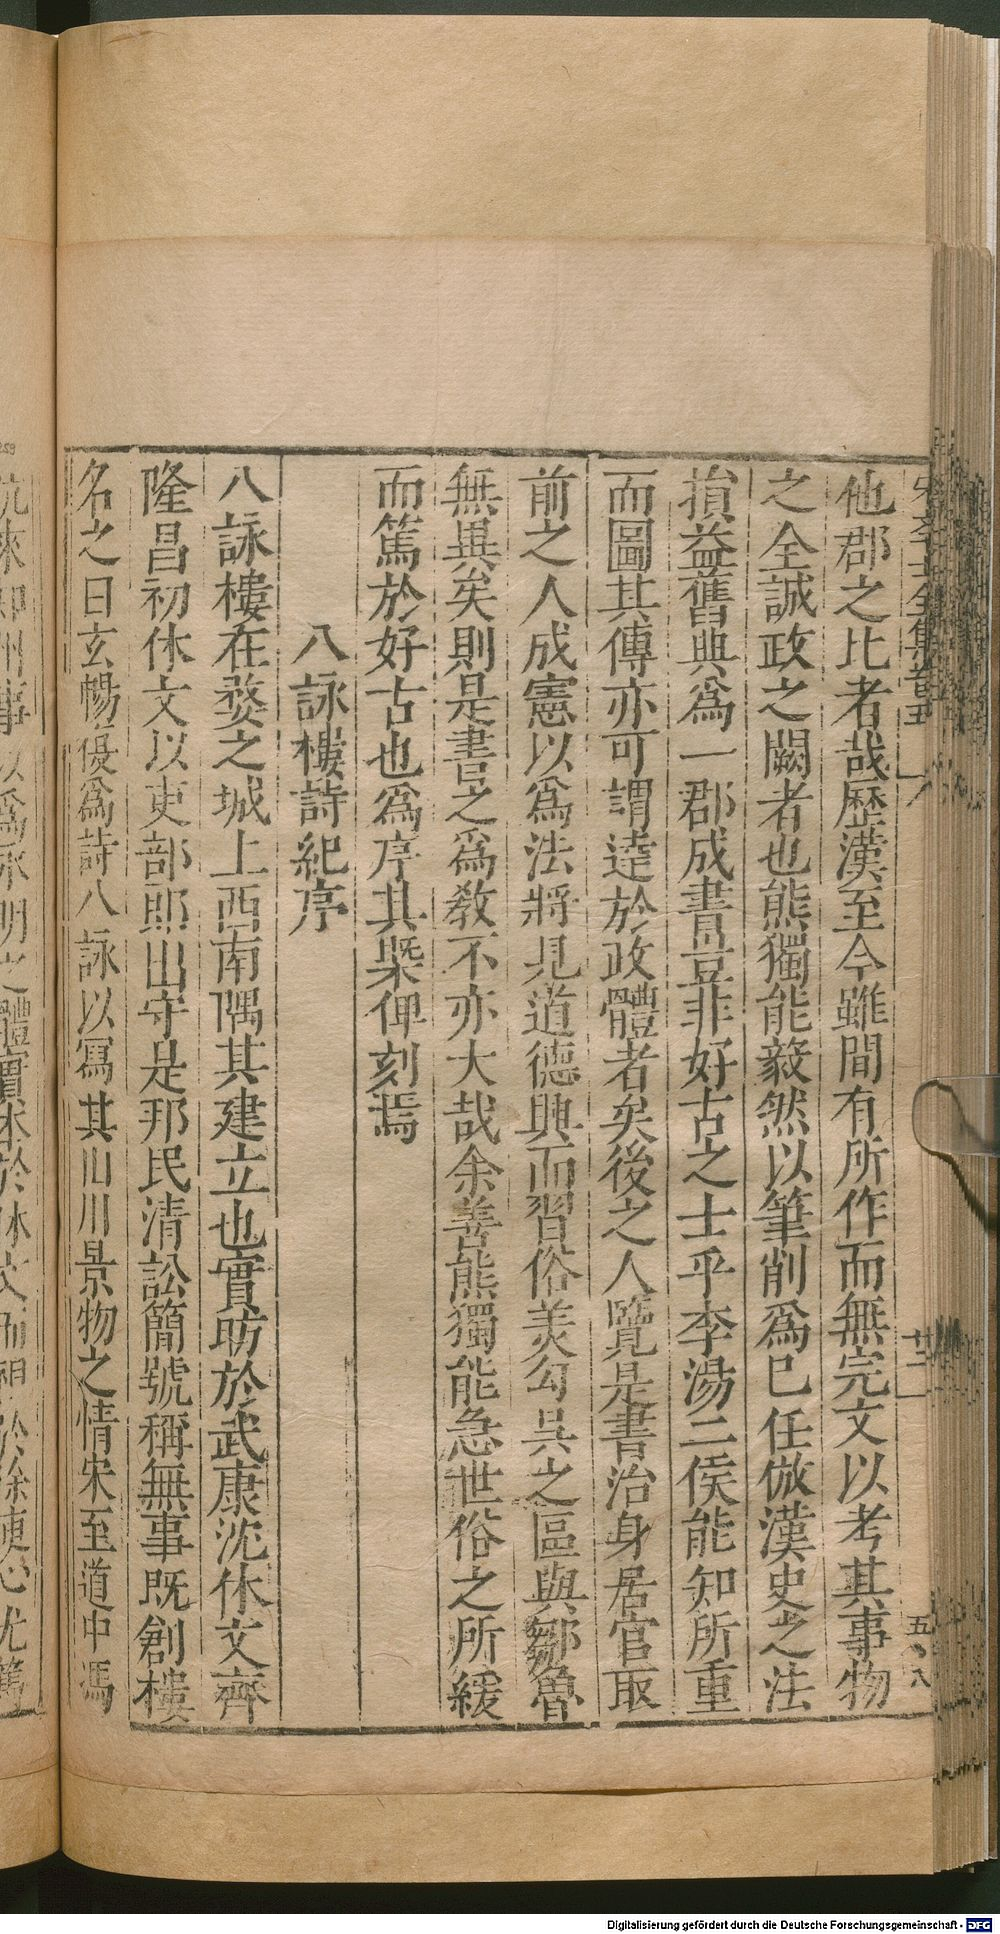 他郡之比者哉歷漢至今雖間有所作而無完文以考其事物
之全誠政之闕者也熊獨能毅然以筆削爲已任倣漢史之法
損益舊典爲一郡成書豈非好古之士乎李湯二侯能知所重
而圖其傳亦可謂逹於政體者矣後之人覽是書治身居官取
前之人成憲以爲法將見道德興而習俗羙勾吳之區與鄒魯
無異矣則是書之爲教不亦大哉余善熊獨能急世俗之所緩
而篤於好古也爲序其槩俾刻焉
八詠樓詩紀序
八詠樓在婺之城上西南隅其建立也實昉於武康沈休文齊
隆昌初休文以吏部郎出守是邦民清訟簡號稱無事既創樓
名之曰玄暢復爲詩八詠以寫其山川景物之情宋至道中馮
Digitalisierung gefördert durch die Deutsche Forschungsgemeinschaft - DFG